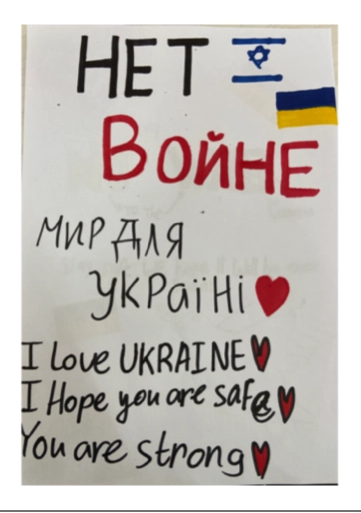 НЕТ
ВОЙНЕ
МИР ДЛЯ
УКРАЇНІ
I Love UKRAINE
I Hope you are safe
You are strong